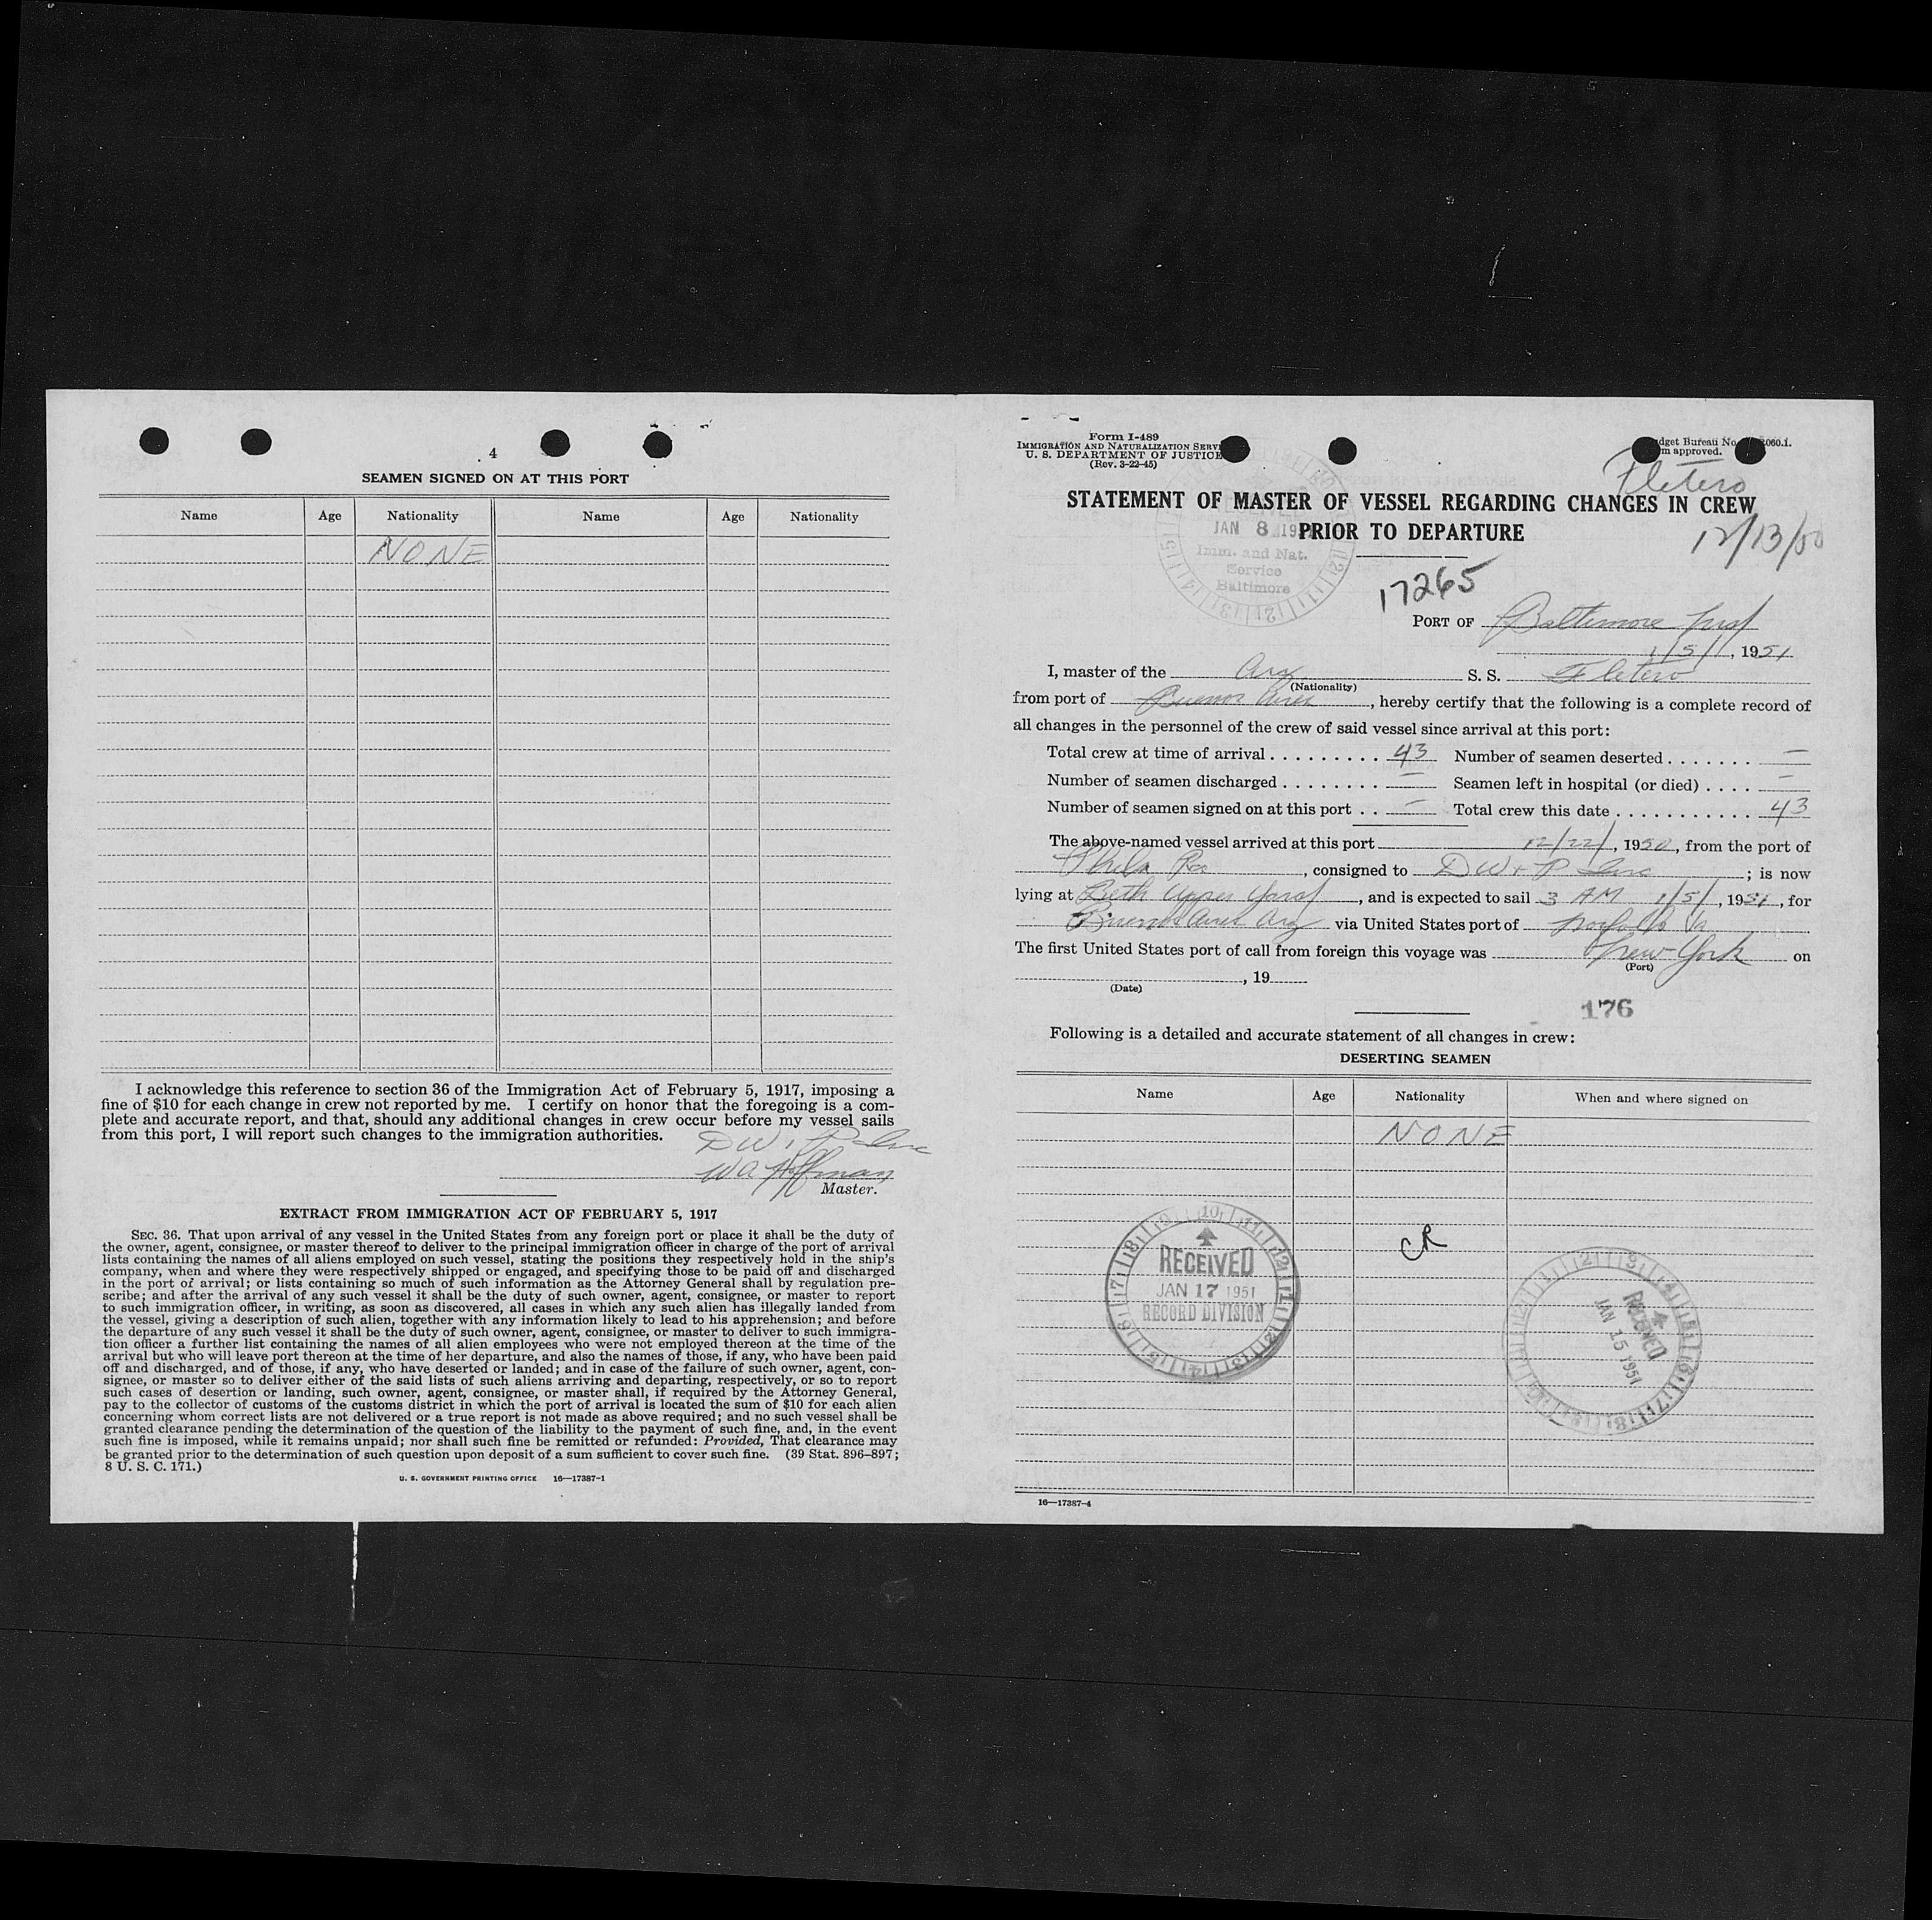 4
SEAMEN SIGNED ON AT THIS PORT
Name Age Nationality Name Age Nationality
NONE
I acknowledge this reference to section 36 of the Immigration Act of February 5, 1917, imposing a
fine of $10 for each change in crew not reported by me. I certify on honor that the foregoing is a com-
plete and accurate report, and that, should any additional changes in crew occur before my vessel sails
from this port, I will report such changes to the immigration authorities.
DW & P Inc
W A Hoffman
Master.
EXTRACT FROM IMMIGRATION ACT OF FEBRUARY 5, 1917
SEC. 36. That upon arrival of any vessel in the United States from any foreign port or place it shall be the duty of
the owner, agent, consignee, or master thereof to deliver to the principal immigration officer in charge of the port of arrival
lists containing the names of all aliens employed on such vessel, stating the positions they respectively hold in the ship's
company, when and where they were respectively shipped or engaged, and specifying those to be paid off and discharged
in the port of arrival; or lists containing so much of such information as the Attorney General shall by regulation pre-
scribe; and after the arrival of any such vessel it shall be the duty of such owner, agent, consignee, or master to report
to such immigration officer, in writing, as soon as discovered, all cases in which any such alien has illegally landed from
the vessel, giving a description of such alien, together with any information likely to lead to his apprehension; and before
the departure of any such vessel it shall be the duty of such owner, agent, consignee, or master to deliver to such immigra-
tion officer a further list containing the names of all alien employees who were not employed thereon at the time of the
arrival but who will leave port thereon at the time of her departure, and also the names of those, if any, who have been paid
off and discharged, and of those, if any, who have deserted or landed; and in case of the failure of such owner, agent, con-
signee, or master so to deliver either of the said lists of such aliens arriving and departing, respectively, or so to report
such cases of desertion or landing, such owner, agent, consignee, or master shall, if required by the Attorney General,
pay to the collector of customs of the customs district in which the port of arrival is located the sum of $10 for each alien
concerning whom correct lists are not delivered or a true report is not made as above required; and no such vessel shall be
granted clearance pending the determination of the question of the liability to the payment of such fine, and, in the event
such fine is imposed, while it remains unpaid; nor shall such fine be remitted or refunded: Provided, That clearance may
be granted prior to the determination of such question upon deposit of a sum sufficient to cover such fine. (39 Stat. 896–897;
8 U. S. C. 171.)
U. S. GOVERNMENT PRINTING OFFICE 16—17387-1
Form I-489
IMMIGRATION AND NATURALIZATION SERV
U. S. DEPARTMENT OF JUSTICE
(Rev. 3-22-45)
dget Bureau No. 060.1.
m approved.
Fletero
STATEMENT OF MASTER OF VESSEL REGARDING CHANGES IN CREW
PRIOR TO DEPARTURE
12/13/50
JAN 8 19
Imm. and Nat.
Service
Baltimore
17265
PORT OF Baltimore
1/5/, 1951
I, master of the Arg S. S. Fletero
(Nationality)
from port of Buenos Aires, hereby certify that the following is a complete record of
all changes in the personnel of the crew of said vessel since arrival at this port:
Total crew at time of arrival . . . . . . . . . 43 Number of seamen deserted . . . . . . . —
Number of seamen discharged . . . . . . . . — Seamen left in hospital (or died) . . . . —
Number of seamen signed on at this port . . — Total crew this date . . . . . . . . . . . 43
The above-named vessel arrived at this port 12/22/, 1950, from the port of
Phila Pa, consigned to DW & P Inc; is now
lying at Beth Upper Yard, and is expected to sail 3 AM 1/5/, 1951, for
Buenos Aires Arg via United States port of Norfolk Va
The first United States port of call from foreign this voyage was New York on
(Port)
, 19
(Date)
176
Following is a detailed and accurate statement of all changes in crew:
DESERTING SEAMEN
Name Age Nationality When and where signed on
NONE
CR
RECEIVED
JAN 17 1951
RECORD DIVISION
RECEIVED
JAN 15 1951
16—17387-4